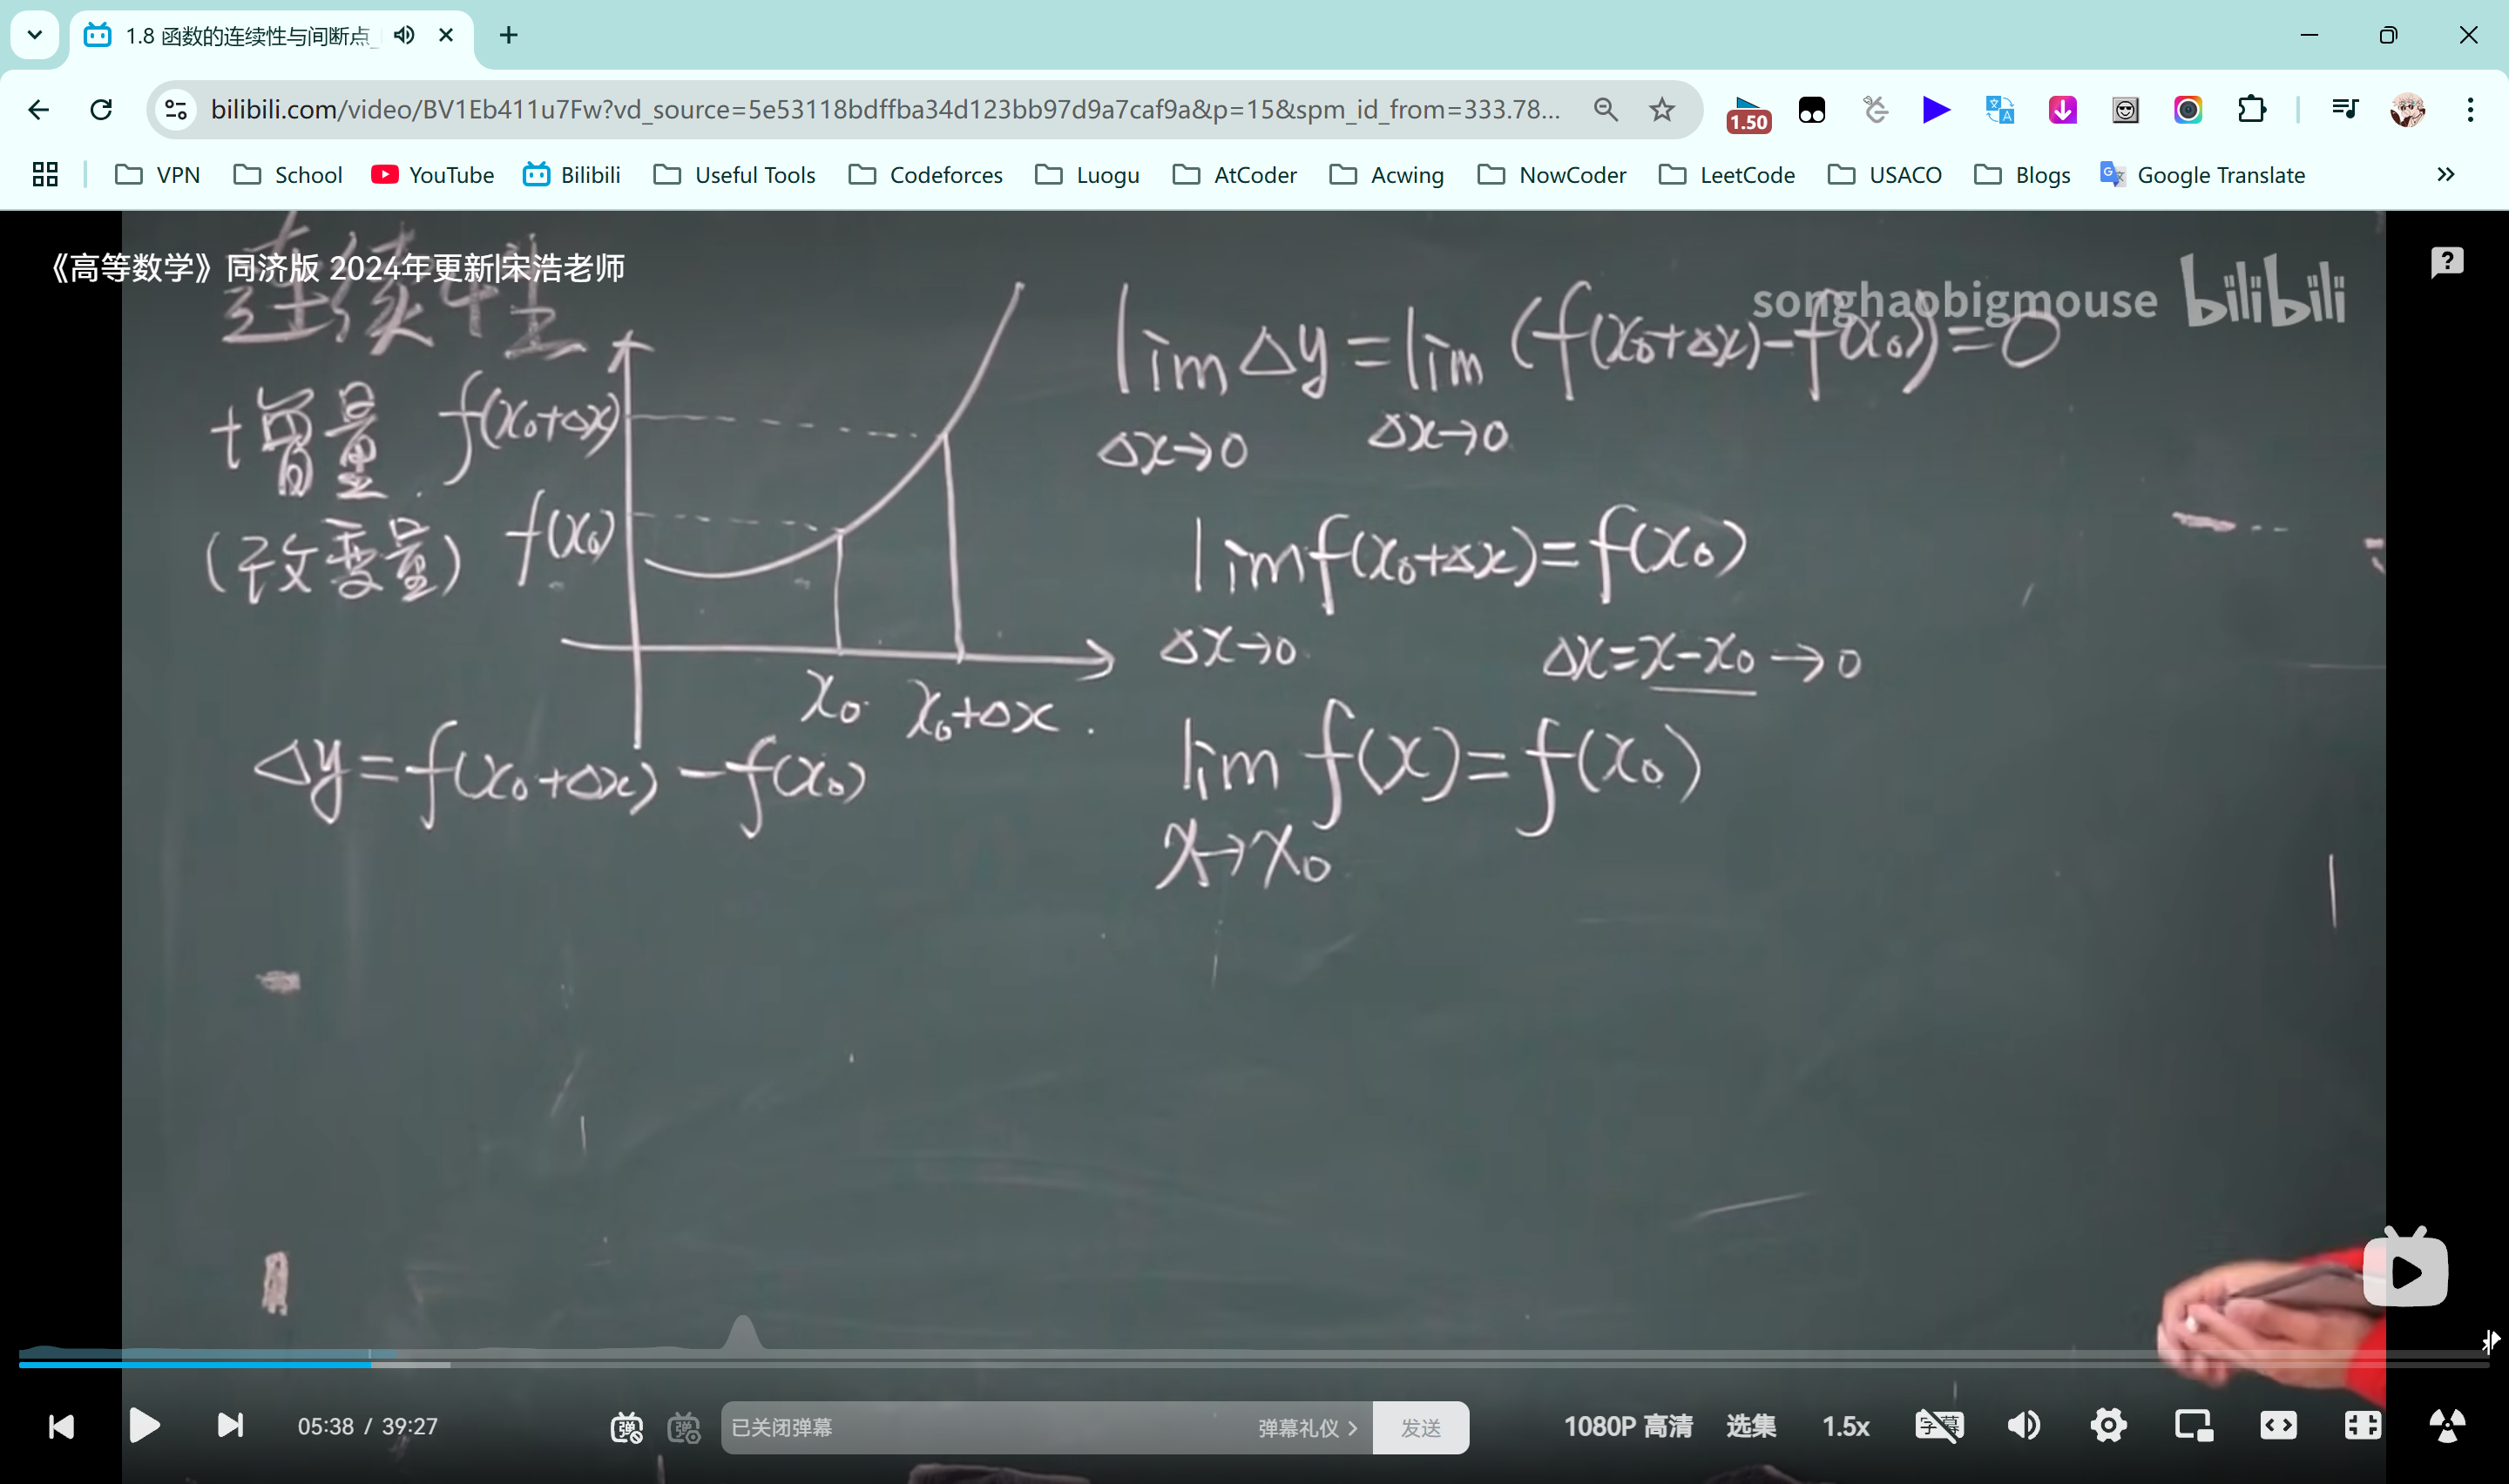 1.8 函数的连续性与间断点_
bilibili.com/video/BV1Eb411u7Fw?vd_source=5e53118bdffba34d123bb97d9a7caf9a&p=15&spm_id_from=333.78...
1.50
VPN School YouTube Bilibili Useful Tools Codeforces Luogu AtCoder Acwing NowCoder LeetCode USACO Blogs Google Translate
《高等数学》同济版 2024年更新|宋浩老师
songhaobigmouse bilibili
连续性
t增量
(改变量)
f(x₀+Δx)
f(x₀)
x₀ x₀+Δx
Δy=f(x₀+Δx)-f(x₀)
lim Δy=lim (f(x₀+Δx)-f(x₀))=0
Δx→0 Δx→0
lim f(x₀+Δx)=f(x₀)
Δx→0 Δx=x-x₀→0
lim f(x)=f(x₀)
x→x₀
05:38 / 39:27 已关闭弹幕 弹幕礼仪 发送 1080P 高清 选集 1.5x 字幕